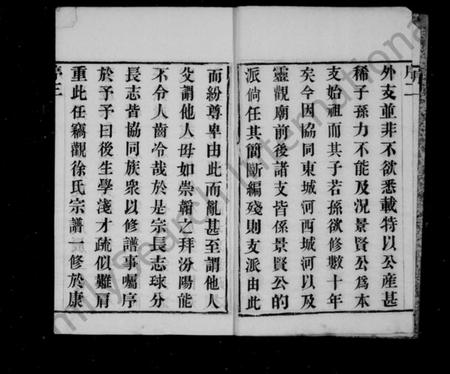 序二
外支並非不欲悉載特以公產甚
稀子孫力不能及況景賢公為本
支始祖而其子若孫欲修數十年
矣今因協同東城河西城河以及
靈觀廟前後諸支皆係景賢公的
派倘任其簡斷編殘則支派由此
而紛尊卑由此而亂甚至謂他人
父謂他人母如崇韜之拜汾陽能
不令人齒冷哉於是宗長志球分
長志皆協同族衆以修譜事囑序
於予予曰後生學淺才疏似難肩
重此任竊觀徐氏宗譜一修於康
序三
FamilySearch International